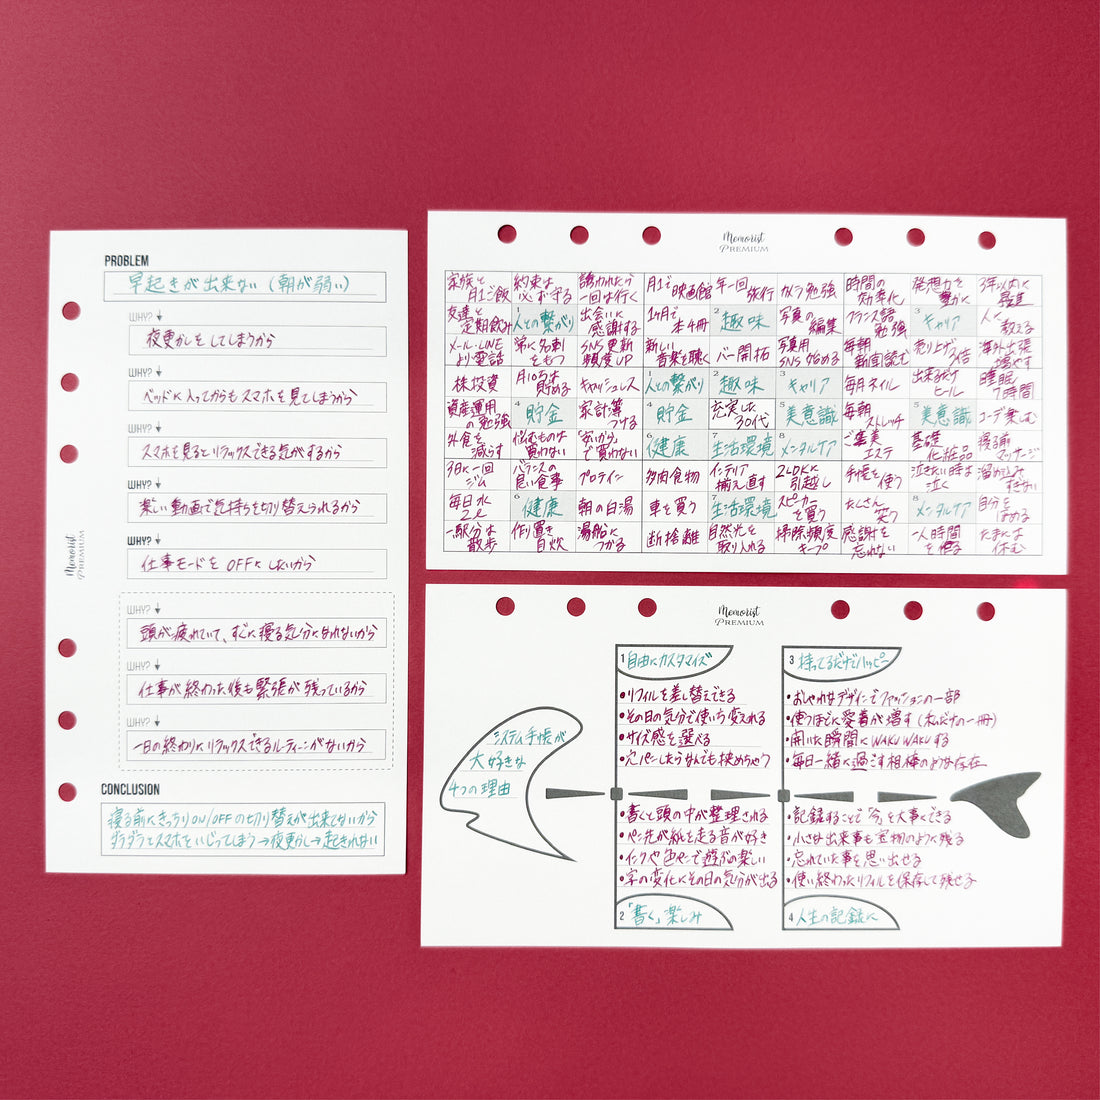 PROBLEM
早起きが出来ない (朝が弱い)
WHY?
夜更かしをしてしまうから
WHY?
ベッドに入ってからもスマホを見てしまうから
WHY?
スマホを見るとリラックスできる気がするから
WHY?
楽しい動画で気持ちを切り替えられるから
WHY?
仕事モードをOFFにしたいから
WHY?
頭が疲れていて、すぐに寝る気分になれないから
WHY?
仕事が終わった後も緊張が残っているから
WHY?
一日の終わりにリラックスできるルーティーンがないから
CONCLUSION
寝る前にきっちりON/OFFの切り替えが出来てないから
ダラダラとスマホをいじってしまう→夜更かし→起きれない
Memorist
PREMIUM
Memorist
PREMIUM
家族と月1ご飯 約束は必ず守る 誘われたら一回は行く 月1で映画館 年一回旅行 カメラ勉強 時間の効率化 発想力を豊かに 3年以内に昇進
友達と定期飲み 1 人との繋がり 出会いに感謝する 1ヶ月で本4冊 2 趣味 写真の編集 フランス語勉強 3 キャリア 人に教える
メール・LINEより電話 常に名刺をもつ SNS更新頻度UP 新しい音楽を聴く バー開拓 写真用SNS始める 毎朝新聞読む 売り上げ 海外出張増やす
株投資 月10万は貯める キャッシュレス 1 人との繋がり 2 趣味 3 キャリア 毎月ネイル 出来るだけヒール 睡眠7時間
資産運用の勉強 4 貯金 家計簿つける 4 貯金 充実した30代 5 美意識 毎朝ストレッチ 5 美意識 コーデ楽しむ
外食を減らす 悩むものは買わない 「安いから」で買わない 6 健康 7 生活環境 8 メンタルケア ご褒美エステ 基礎化粧品 寝る前マッサージ
3日に一回ジム バランスの良い食事 プロテイン 多肉食物 インテリア揃え直す 2LDKに引越し 手帳を使う 泣きたい時は泣く 溜め込みすぎない
毎日水2L 6 健康 朝の白湯 車を買う 7 生活環境 スピーカーを買う たくさん笑う 8 メンタルケア 自分をほめる
一駅分は散歩 作り置き自炊 湯船につかる 断捨離 自然光を取り入れる 掃除頻度キープ 感謝を忘れない 一人時間を作る たまには休む
Memorist
PREMIUM
システム手帳が
大好きな
4つの理由
1 自由にカスタマイズ
・リフィルを差し替えできる
・その日の気分で使い方変えれる
・サイズ感を選べる
・穴パンしたらなんでも挟めちゃう
3 持ってるだけでハッピー
・おしゃれなデザインでファッションの一部
・使うほどに愛着が増す (私だけの一冊)
・開いた瞬間にWAKU WAKUする
・毎日一緒に過ごす相棒のような存在
・書くと頭の中が整理される
・ペン先が紙を走る音が好き
・インクや色ペンで遊ぶの楽しい
・字の変化にその日の気分が出る
2 「書く」楽しみ
・記録することで「今」を大事にできる
・小さな出来事も宝物のように残る
・忘れていた事を思い出せる
・使い終わったリフィルを保存して残せる
4 人生の記録に